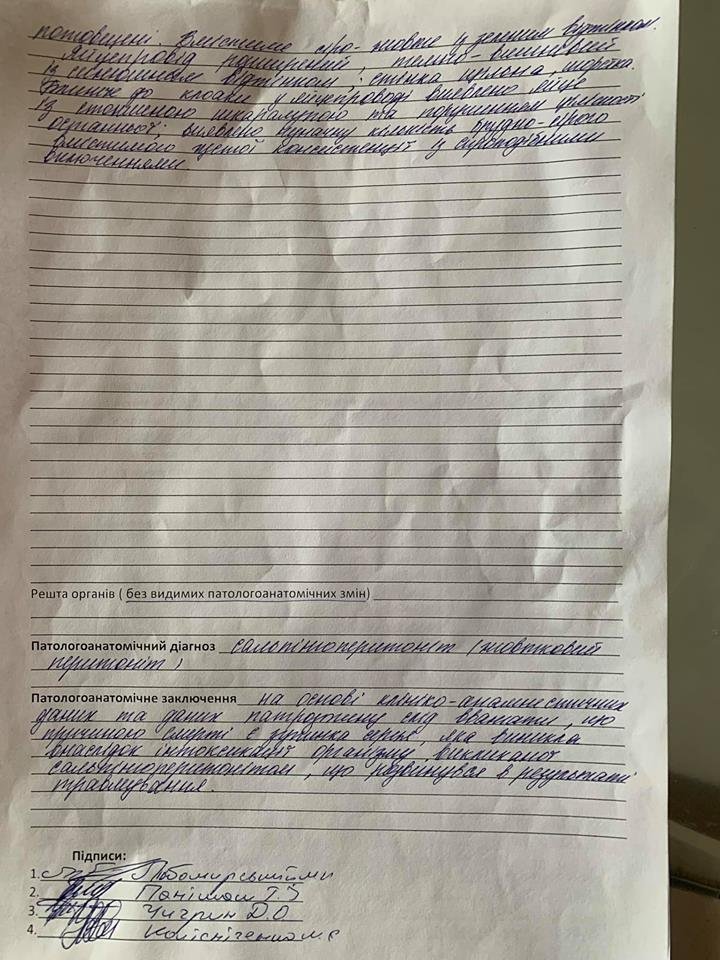 потовщені. Вмістиме сіро-жовте із зеленим відтінком.
Яйцепровід розширений, темно-вишневий
із синюшним відтінком; стінка щільна шорстка.
Ближче до клоаки у яйцепроводі виявлено яйце
із стоншеною шкаралупою та порушенням цілісності
останньої; виявлено значну кількість брудно-сірого
вмістимого густої консистенції з сироподібними
включеннями.
Решта органів ( без видимих патологоанатомічних змін)
Патологоанатомічний діагноз сальпінгоперитоніт (жовтковий
перитоніт)
Патологоанатомічне заключення на основі клініко-анамнестичних
даних та даних патрозтину слід вважати, що
причиною смерті є зупинка серця, яка виникла
внаслідок інтоксикації організму, викликаної
сальпінгоперитонітом, що розвинувся в результаті
травмування.
Підписи:
1.
2.
3. Чигрин Д.О
4.